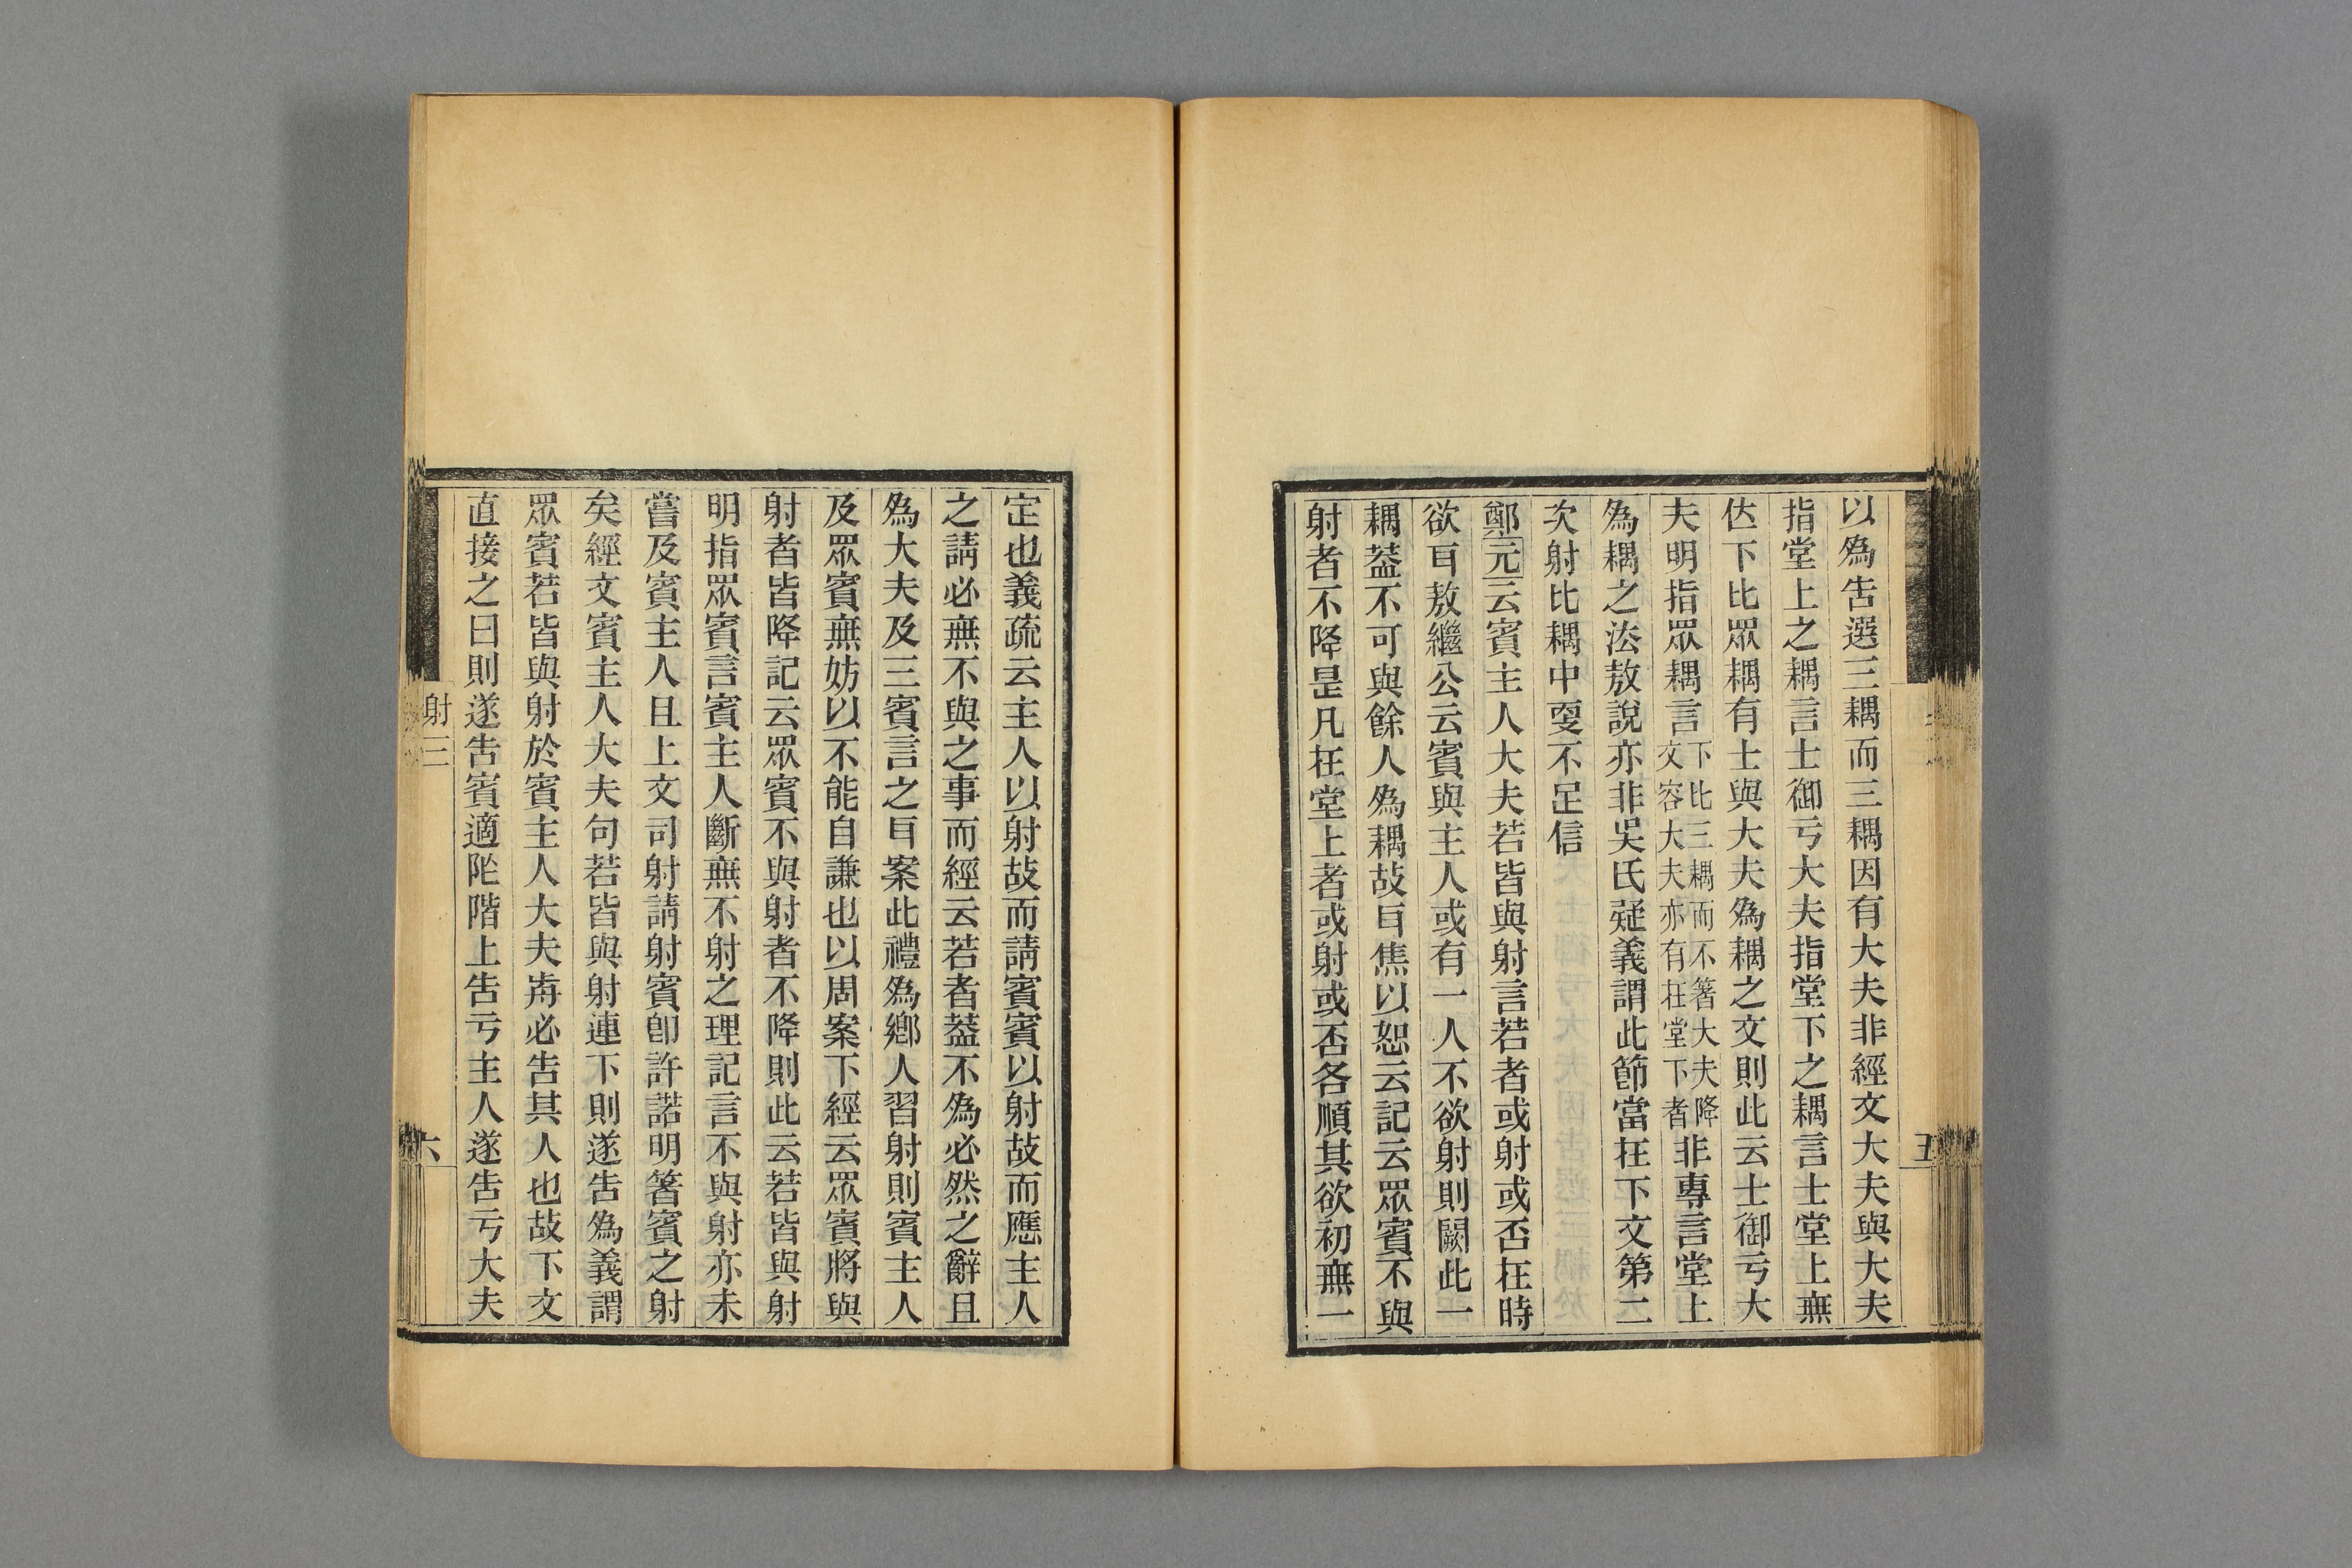 以爲告選三耦而三耦因有大夫非經文大夫與大夫
指堂上之耦言士御亏大夫指堂下之耦言士堂上無
佐下比眾耦有士與大夫爲耦之文則此云士御亏大
夫明指眾耦言下比三耦而不箸大夫降文容大夫亦有在堂下者非專言堂上
爲耦之法敖說亦非吳氏疑義謂此節當在下文第二
次射比耦中耎不足信
鄭元云賓主人大夫若皆與射言若者或射或否在時
欲㠯敖繼公云賓與主人或有一人不欲射則闕此一
耦葢不可與餘人爲耦故㠯焦以恕云記云眾賓不與
射者不降是凡在堂上者或射或否各順其欲初無一
定也義疏云主人以射故而請賓賓以射故而應主人
之請必無不與之事而經云若者葢不爲必然之辭且
爲大夫及三賓言之㠯案此禮爲鄉人習射則賓主人
及眾賓無妨以不能自謙也以周案下經云眾賓將與
射者皆降記云眾賓不與射者不降則此云若皆與射
明指眾賓言賓主人斷無不射之理記言不與射亦未
嘗及賓主人且上文司射請射賓卽許諾明箸賓之射
矣經文賓主人大夫句若皆與射連下則遂告爲義謂
眾賓若皆與射於賓主人大夫歬必告其人也故下文
直接之曰則遂告賓適阼階上告亏主人遂告亏大夫
射三
六
五